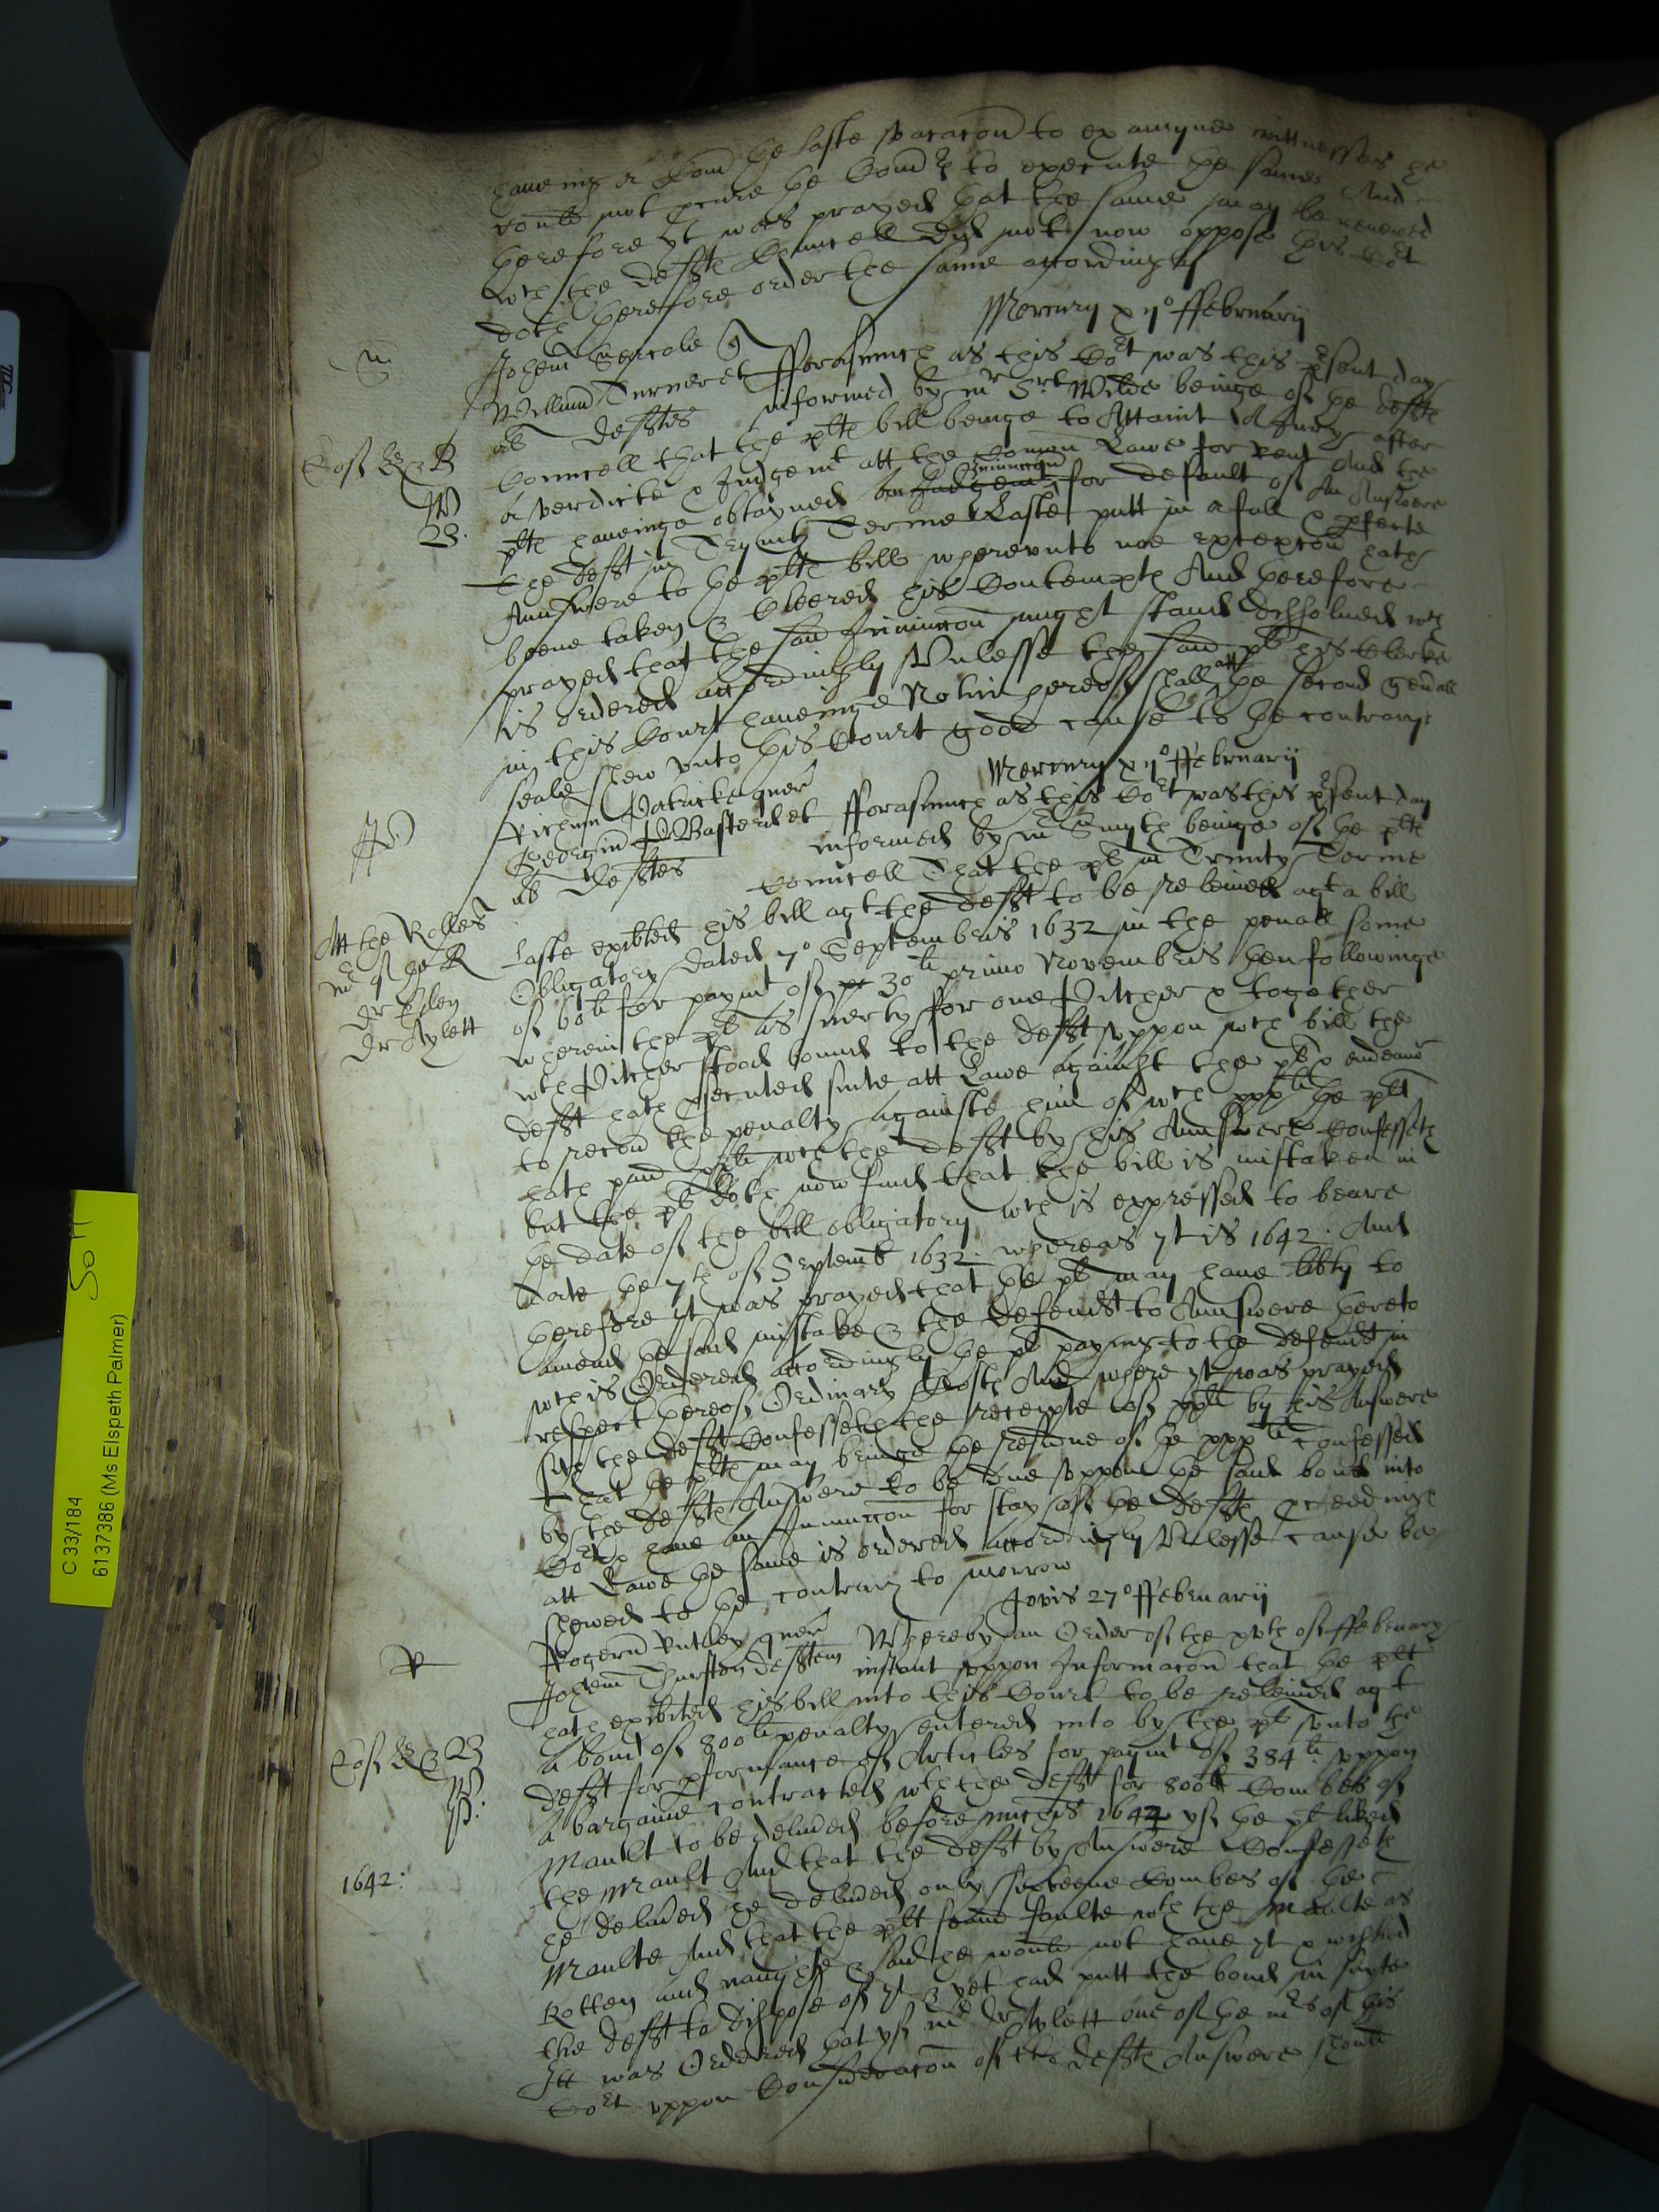 haveing a Com the laste vacacon to examyne wittnesses he
could not procure the Comrs to execute the same And
therefore yt was prayed that the same may be renewed
wch the defts Councell did not now oppose this Cort
doth therefore order the same accordingly
Mercurij xijo ffebruarij
Johem q
Willm Turner et ffforasmuch as this Cort was this present day
al defttes informed by mr Srt Wilde beinge of the defts
Councell that the plts bill beinge to Attaint A Jury after
a verdicte & Judgemt att the Comon Lawe for rent And the
plt haveinge obtayned an Judgemt Iniunccon for default of An Answere
The deft in Trynity Terme Laste putt in a full & pfecte
Answere to the plts bill wherevnto noe excepcon hath
beene taken & Cleered his Contempte And therefore
prayed that the said Iniunccon might stand dissolued wch
is ordered accordingly Vnlesse the said plt his Clerke
in this Court haveinge Notice thereof shall att the second genall
seale shew vnto this Court good cause to the contrary
Mercurij xijo ffebruarij
Richum quer
Georgm et fforasmuch as this Cort was this present day
al Defttes informed by mr Smyth beinge of the plts
Councell That the plt in Trinity Terme
Laste exibited his bill agt the deft to be releived agt a bill
Obligatory dated 7o Septembris 1632 in the penall some
of 60li for paymt of 30li primo Novembris then followinge
wherein the plt as suerty for one Pitcher & together
wth Pitcher stood bound to the deft vppon wch bill the
deft hath psecuted suite att Lawe against the plt & endeavr
to recov the penalty againste him of wch xxxli the plt
hath paid wch the deft by his Answere Confesseth
but the plt doth now find that the bill is mistaken in
the date of the bill obligatory wch is expressed to beare
date the 7th of Septemb 1632 whereas yt is 1642. And
therefore yt was prayed that the plt may have libty to
amend the said mistake & the defendt to Answere thereto
wch is Ordered accordingly the plt paying to the defendt in
respect thereof Ordinary Costs And where yt was prayed
sith the deft Confesseth the receipte of by his Answere
That the plt may bringe the residue of the xxxli confessed
by the defts Answere to be due vppon the said bond into
Cort & have an Iniunccon for stay of the defts pceedings
att Lawe the same is ordered accordingly Vnlesse cause be
shewed to the contrary to morrow
Jovis 27o ffebruarij
Rogerum quer Whereby an Order of the xvth of ffebruary
Johem Thurston defttem instant vppon Informacon that the plt
hath exibited his bill into this Court to be releived agt
a bond of 800li penalty entered into by the plt vnto the
deft for pformance of Articles for paymt of 384li vppon
a bargaine contracted wth the deft for 800 Combes of
Mault to be delived before michs 1642 yf the plt liked
the Mault And that the deft by Answere Confesseth
he delived onely Combes of the
Maulte And that the plt found faulte wth the Maulte as
Rotten and naughte & said he would not have yt & wished
the deft to dispose of yt & yet had putt the bond in suite
Itt was Ordered that yf mr Dr Aylett one of the mrs of this
Cort vppon Consideracon of the defts Answere should
Att the Rolles
mr of the R
Dr
Dr Aylett
1642:
C 33/184
6137386 (Ms Elspeth Palmer)